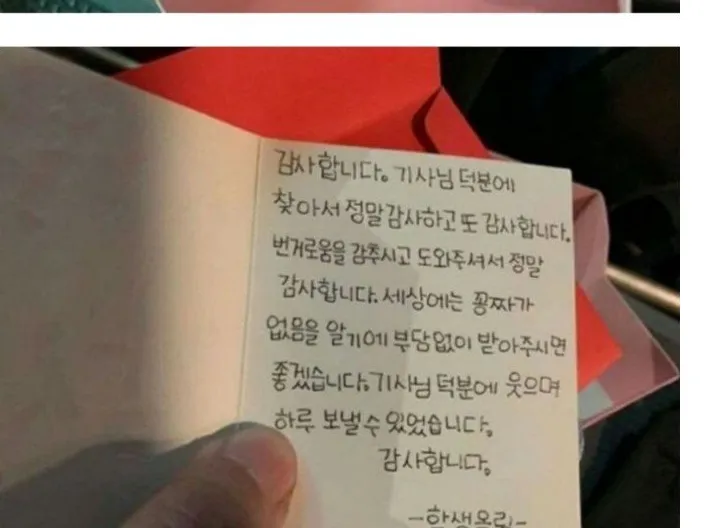 감사합니다. 기사님 덕분에
찾아서 정말 감사하고 또 감사합니다.
번거로움을 감추시고 도와주셔서 정말
감사합니다. 세상에는 꽁짜가
없음을 알기에 부담없이 받아주시면
좋겠습니다. 기사님 덕분에 웃으며
하루 보낼수 있었습니다.
감사합니다.
-학생올림-